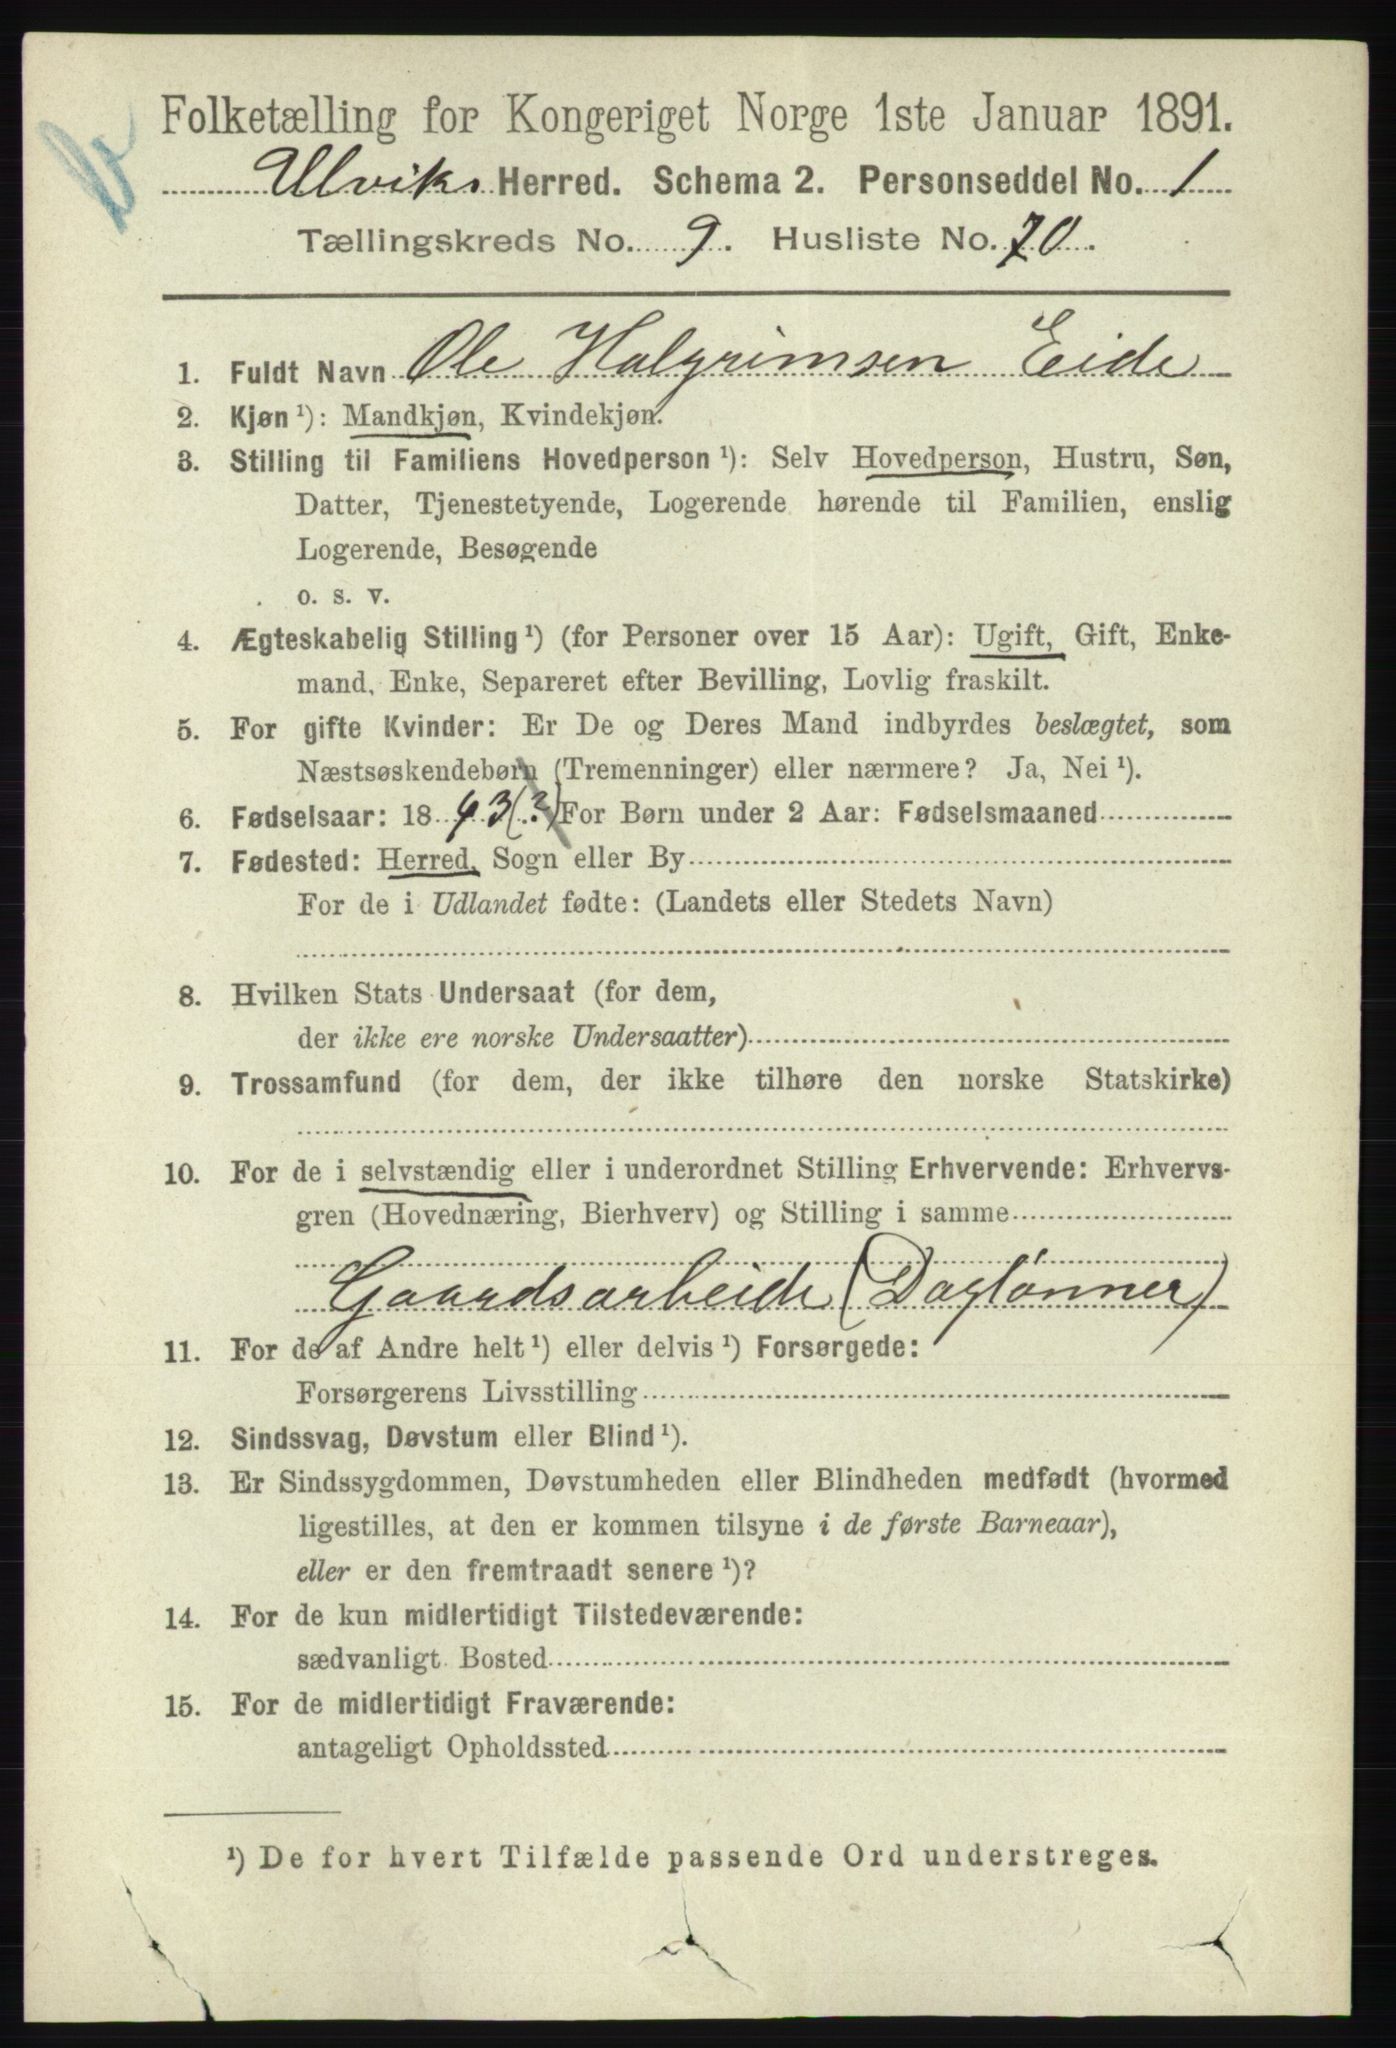 Folketælling for Kongeriget Norge 1ste Januar 1891.
Ulviks Herred. Schema 2. Personseddel No. 1
Tællingskreds No. 9. Husliste No. 70.
1. Fuldt Navn Ole Halgrimsen Eide
2. Kjøn ¹): Mandkjøn, Kvindekjøn.
3. Stilling til Familiens Hovedperson ¹): Selv Hovedperson, Hustru, Søn,
Datter, Tjenestetyende, Logerende hørende til Familien, enslig
Logerende, Besøgende
o. s. v.
4. Ægteskabelig Stilling ¹) (for Personer over 15 Aar): Ugift, Gift, Enke-
mand, Enke, Separeret efter Bevilling, Lovlig fraskilt.
5. For gifte Kvinder: Er De og Deres Mand indbyrdes beslægtet, som
Næstsøskendebørn (Tremenninger) eller nærmere? Ja, Nei ¹).
6. Fødselsaar: 18 43(?) For Børn under 2 Aar: Fødselsmaaned
7. Fødested: Herred, Sogn eller By
For de i Udlandet fødte: (Landets eller Stedets Navn)
8. Hvilken Stats Undersaat (for dem,
der ikke ere norske Undersaatter)
9. Trossamfund (for dem, der ikke tilhøre den norske Statskirke)
10. For de i selvstændig eller i underordnet Stilling Erhvervende: Erhvervs-
gren (Hovednæring, Bierhverv) og Stilling i samme
Gaardsarbeide (Daglønner)
11. For de af Andre helt ¹) eller delvis ¹) Forsørgede:
Forsørgerens Livsstilling
12. Sindssvag, Døvstum eller Blind ¹).
13. Er Sindssygdommen, Døvstumheden eller Blindheden medfødt (hvormed
ligestilles, at den er kommen tilsyne i de første Barneaar),
eller er den fremtraadt senere ¹)?
14. For de kun midlertidigt Tilstedeværende:
sædvanligt Bosted
15. For de midlertidigt Fraværende:
antageligt Opholdssted
¹) De for hvert Tilfælde passende Ord understreges.